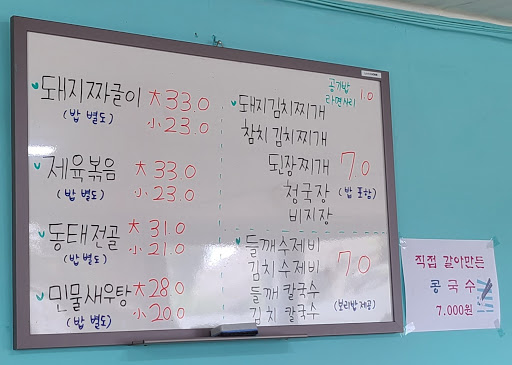 돼지짜글이 大 33.0
(밥 별도) 小 23.0
제육볶음 大 33.0
(밥 별도) 小 23.0
동태전골 大 31.0
(밥 별도) 小 21.0
민물새우탕 大 28.0
(밥 별도) 小 20.0
공기밥
라면사리 1.0
돼지김치찌개
참치김치찌개
된장찌개 7.0
청국장 (밥 포함)
비지장
들깨수제비
김치수제비 7.0
들깨 칼국수
김치 칼국수 (보리밥제공)
직접 갈아만든
콩국수
7.000원